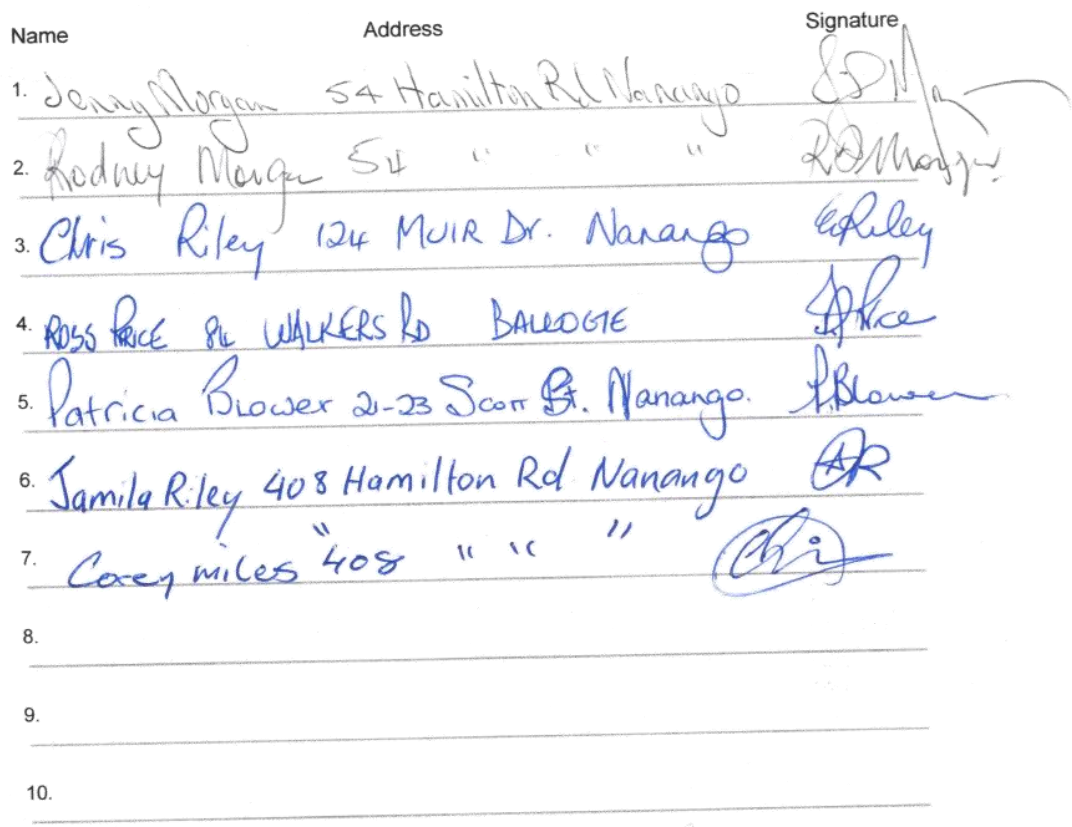 Name Address Signature
1. Jenny Morgan 54 Hamilton Rd Nanango
2. Rodney Morgan 54 " " " RD Morgan
3. Chris Riley 124 MUIR Dr. Nanango C Riley
4. ROSS PRICE 84 WALKERS RD BALLOGIE Price
5. Patricia Blower 21-23 Scott St. Nanango. P. Blower
6. Jamila Riley 408 Hamilton Rd Nanango
7. Corey miles "408 " " "
8.
9.
10.